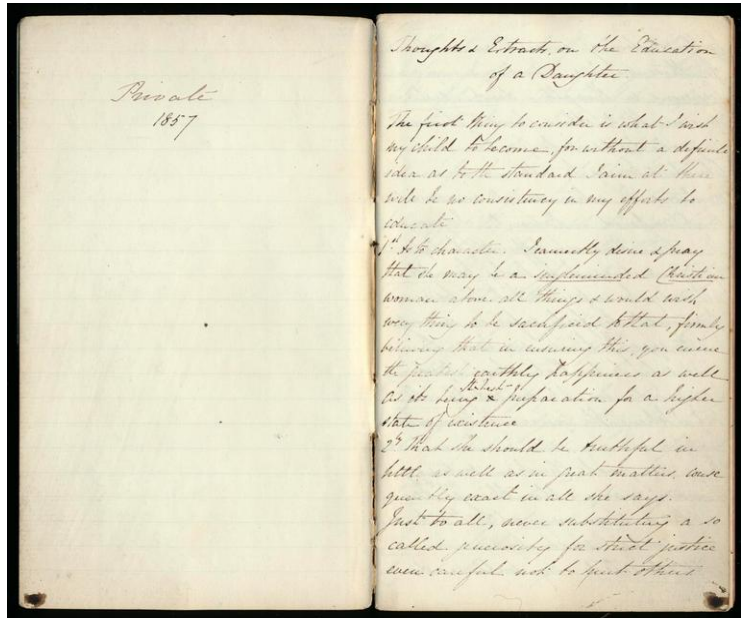 Private
1857
Thoughts & Extracts, on the Education
of a Daughter.
The first thing to consider is what I wish
my child to become, for without a definite
idea as to the standard I aim at there
will be no consistency in my efforts to
educate
1st As to character. I earnestly desire & pray
that she may be a singleminded Christian
woman above all things & would wish
every thing to be sacrificed to that, firmly
believing that in ensuring this, you ensure
the greatest earthly happiness as well
as its being the best preparation for a higher
state of existence
2d That she should be truthful in
little as well as in great matters, conse
quently exact in all she says.
Just to all, never substituting a so
called generosity for strict justice
even careful not to hurt others